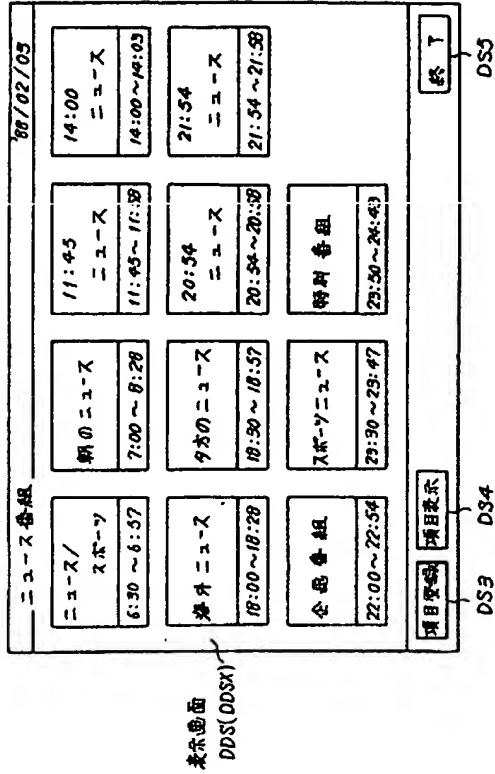 ニュース番組 '88/02/05
ニュース/
スポーツ
6:30～6:57
朝のニュース
7:00～8:28
11:45
ニュース
11:45～11:58
14:00
ニュース
14:00～14:03
海外ニュース
18:00～18:28
夕方のニュース
18:30～18:57
20:54
ニュース
20:54～20:58
21:54
ニュース
21:54～21:58
企画番組
22:00～22:54
スポーツニュース
23:30～23:47
特別番組
23:50～24:43
項目登録
項目表示
終了
DS3
DS4
DS5
表示画面
DDS(DDSX)